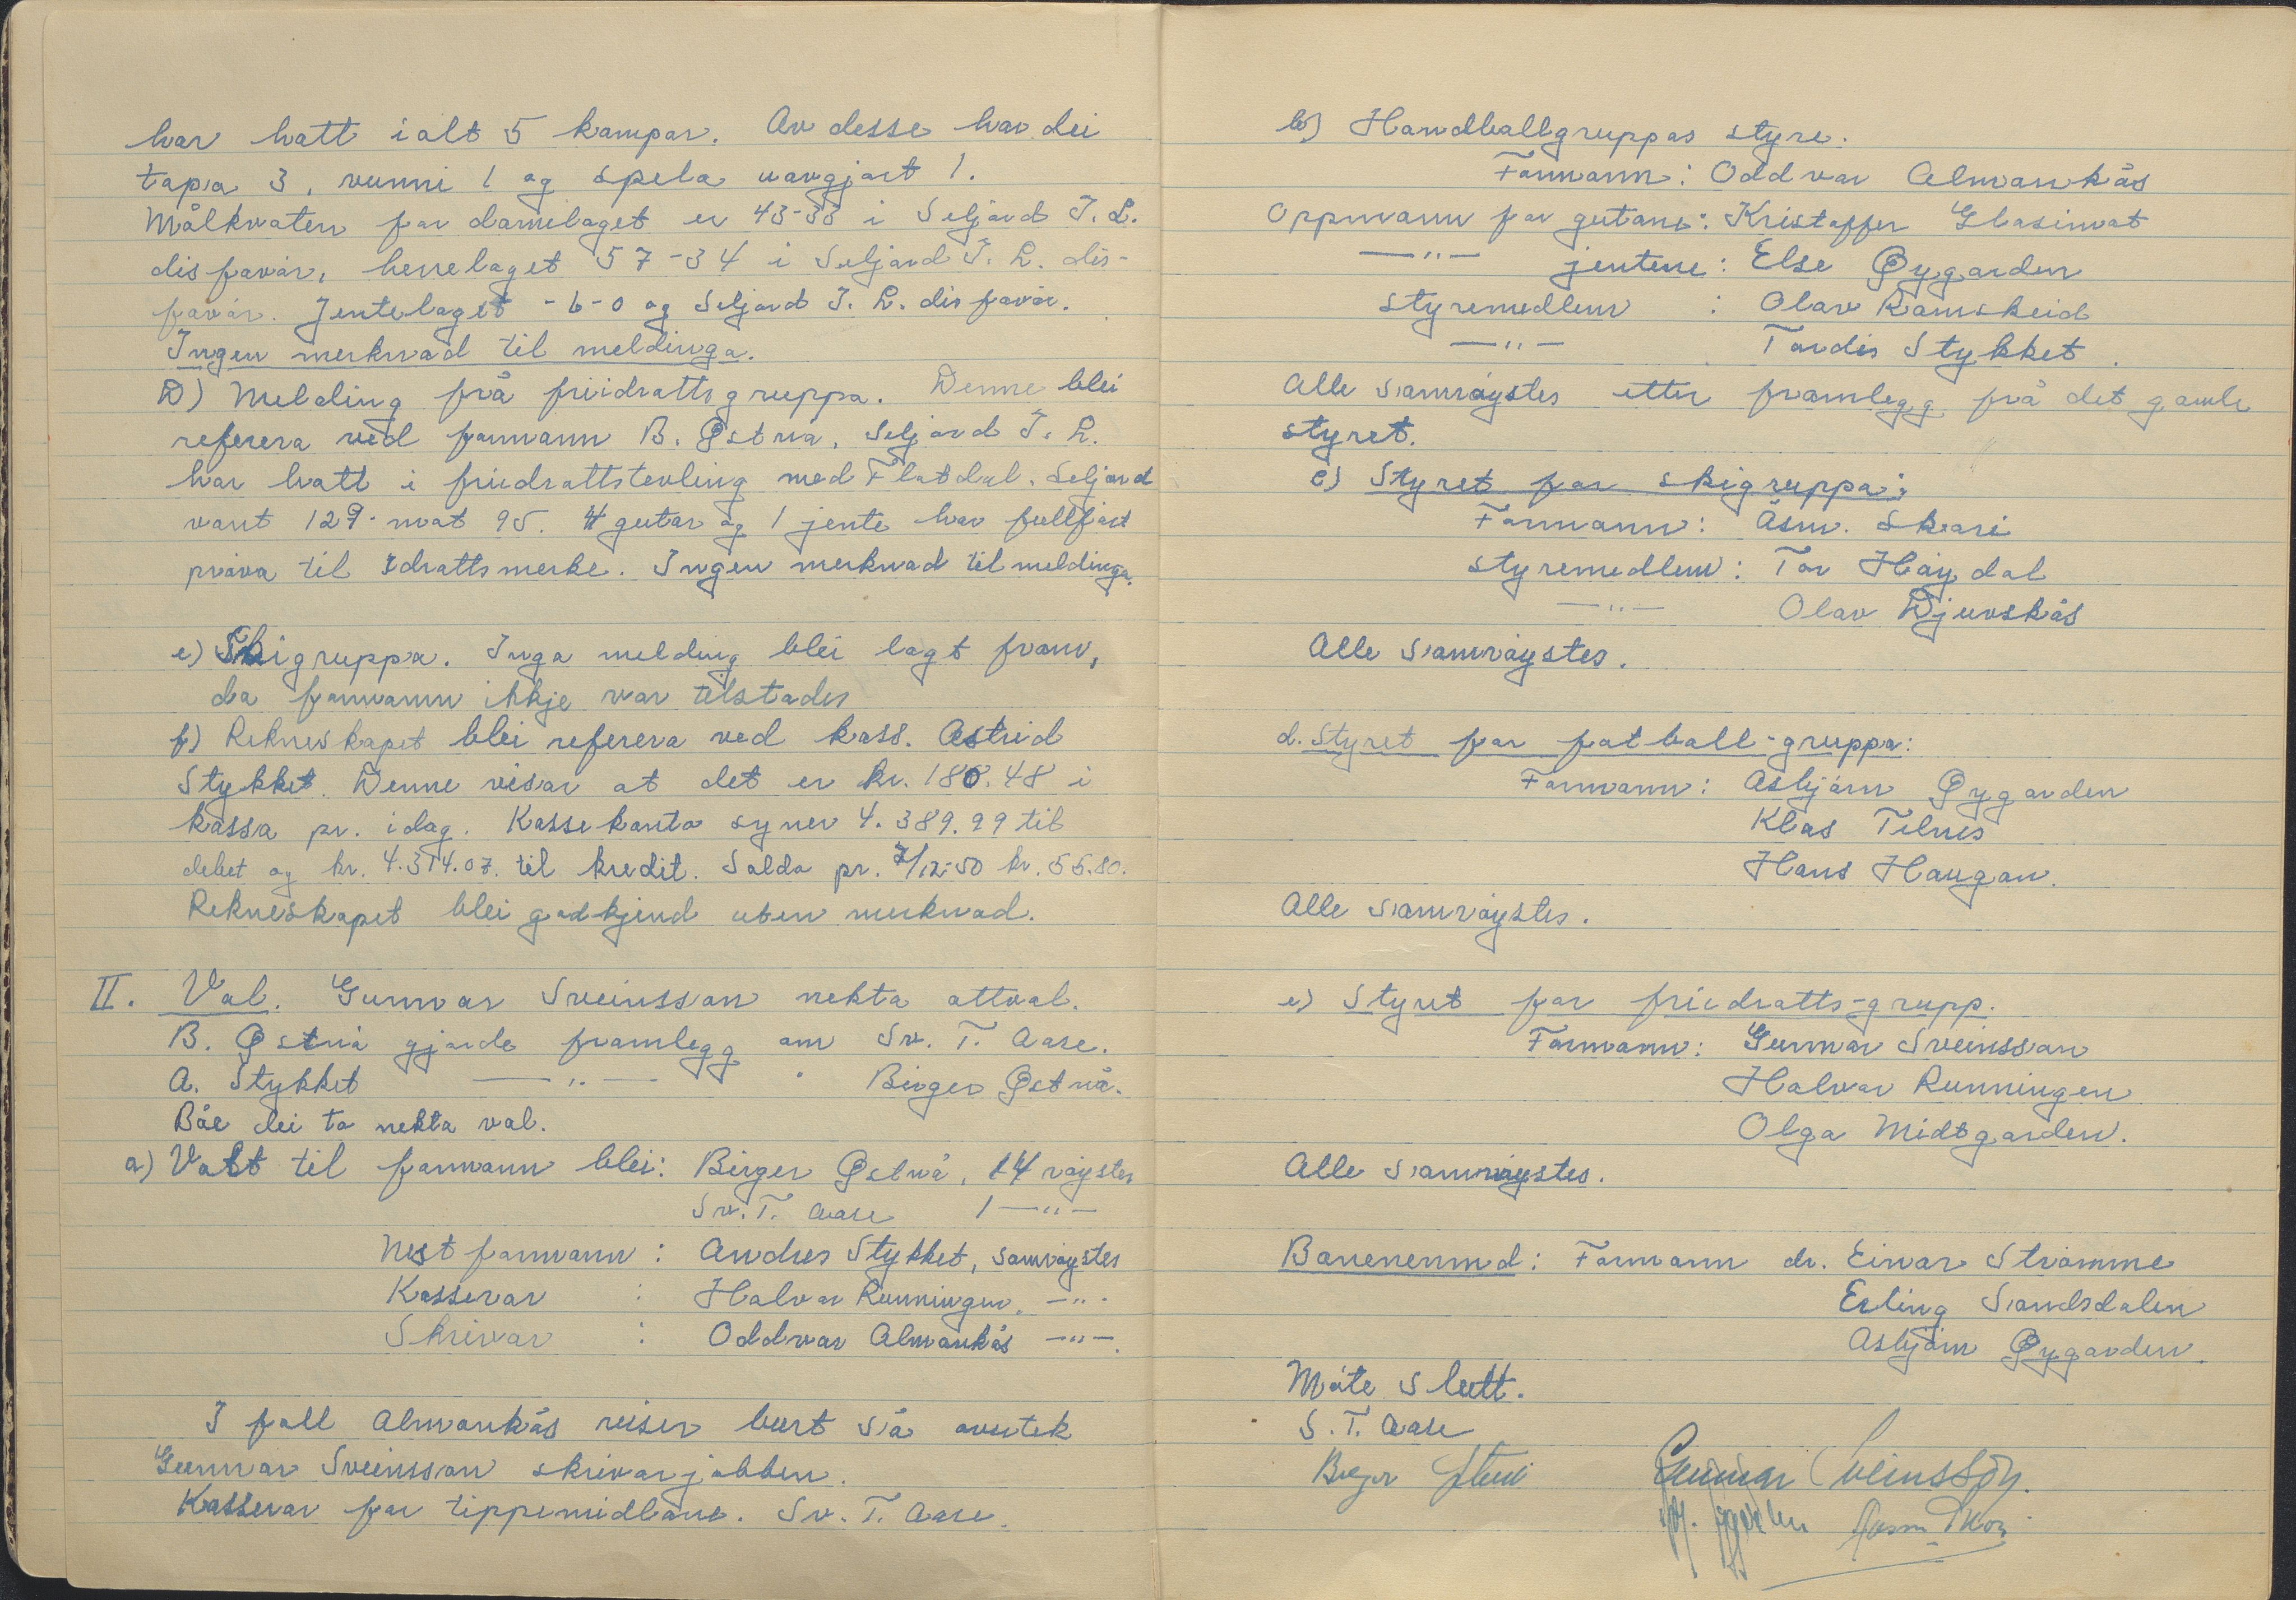 har hatt ialt 5 kampar. Av desse har dei
tapa 3, vunni 1 og spela uavgjort 1.
Målkvoten for damelaget er 43-33 i Seljord I.L.
disfavør, herrelaget 57-34 i Seljord I.L. dis-
favør. Jentelaget -6-0 og Seljord I.L. disfavør.
Ingen merknad til meldinga.
D) Melding frå friidrottsgruppa. Denne blei
referera ved formann B. Østnø, Seljord I.L.
har hatt i friidrottstevling med Flatdal. Seljord
vant 129 mot 95. 4 gutar og 1 jente har fullført
prøva til Idrottsmerke. Ingen merknad til meldinga.
e) Skigruppa. Inga melding blei lagt fram,
da formann ikkje var tilstades
f) Rekneskapet blei referera ved kass. Astrid
Stykket. Denne visar at det er kr. 180.48 i
kassa pr. idag. Kassekonto syner 4.389.99 til
debet og kr. 4.314.07. til kredit. Saldo pr. 7/12-50 kr. 55.80.
Rekneskapet blei godkjend uten merknad.
II. Val. Gunnar Sveinsson nekta attval.
B. Østnø gjorde framlegg om Sv. T. Aase.
A. Stykket —"— " Birger Østnø.
Båe dei to nekta val.
a) Valt til formann blei: Birger Østnø, 14 røyster
Sv. T. Aase 1 —"—
Nest formann : Andres Stykket, samrøystes
Kasserar : Halvor Runningen. —"—
Skrivar : Oddvar Almankås —"—.
I fall Almankås reiser burt så overtek
Gunnar Sveinsson skrivarjobben.
Kasserar for tippemidlane. Sv. T. Aase.
b) Handballgruppas styre.
Formann: Oddvar Almankås
Oppmann for gutane: Kristoffer Glasimot
—"— jentene: Else Øygarden
Styremedlem : Olav Ramskeid
—"— Tordis Stykket.
Alle samrøystes etter framlegg frå det gamle
styret.
c) Styret for skigruppa:
Formann: Åsm. Skori
Styremedlem: Tor Høydal
—"— Olav Djuvskås
Alle samrøystes.
d. Styret for fotball-gruppa:
Formann: Asbjørn Øygarden
Klas Telnes
Hans Haugan.
Alle samrøystes.
e) Styret for friidrotts-grupp.
Formann: Gunnar Sveinsson
Halvor Runningen
Olga Midtgarden.
Alle samrøystes.
Banenemnd: Formann dr. Einar Strømme
Erling Sandsdalen
Asbjørn Øygarden.
Møte slutt.
S. T. Aase
Birger Østnø Gunnar Sveinsson.